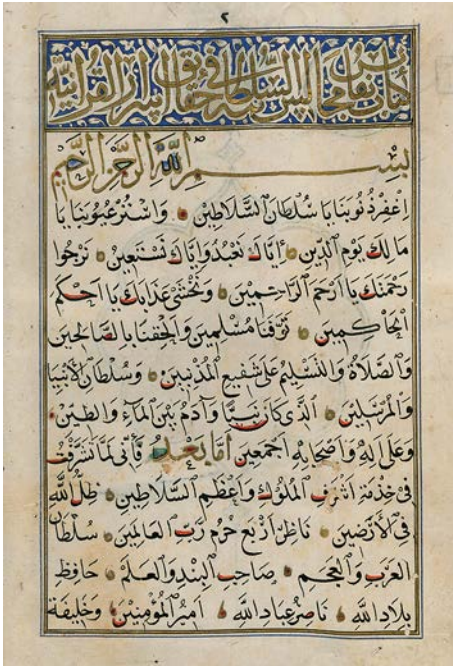 ٢
كتاب نفائس مجالس السلطانية في حقائق اسرار القرآنية
بسم الله الرحمن الرحيم
اغفر ذنوبنا يا سلطان السلاطين واستر عيوبنا يا
مالك يوم الدين إياك نعبد وإياك نستعين نرجوا
رحمتك يا ارحم الراحمين ونخشى عذابك يا احكم
الحاكمين توفنا مسلمين والحقنا بالصالحين
والصلاة والتسليم على شفيع المذنبين وسلطان الأنبيا
والمرسلين الذي كان نبيا وآدم بين المآء والطين
وعلى اله واصحابه اجمعين اما بعد فأني لما تشرفت
في خدمة اشرف الملوك واعظم السلاطين ظل الله
في الأرضين ناظر أربع حرم رب العالمين سلطان
العرب والعجم صاحب البند والعلم حافظ
بلاد الله ناصر عباد الله امير المؤمنين وخليفة